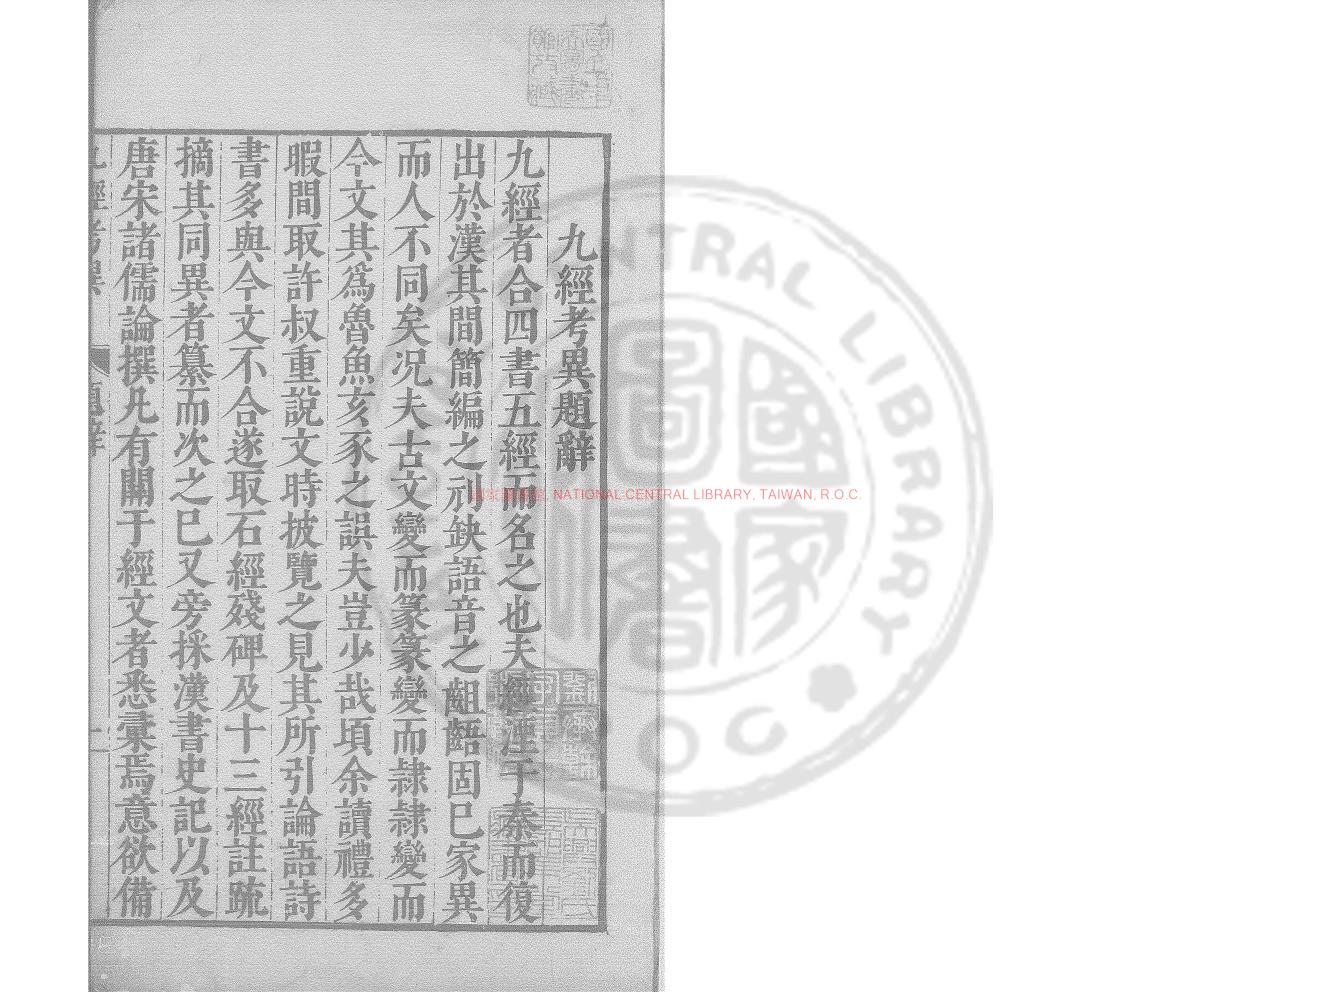 九經考異題辭
九經者合四書五經而名之也夫經湮于秦而復
出於漢其間簡編之刓缺語音之齟齬固已家異
而人不同矣况夫古文變而篆篆變而隸隸變而
今文其爲魯魚亥豕之誤夫豈少哉頃余讀禮多
暇間取許叔重說文時披覽之見其所引論語詩
書多與今文不合遂取石經殘碑及十三經註疏
摘其同異者纂而次之已又旁採漢書史記以及
唐宋諸儒論撰凡有關于經文者悉彙焉意欲備
九經考異 題辭 一
國家圖書館, NATIONAL CENTRAL LIBRARY, TAIWAN, R.O.C.
NTRAL LIBRARY
國家圖書
ROC